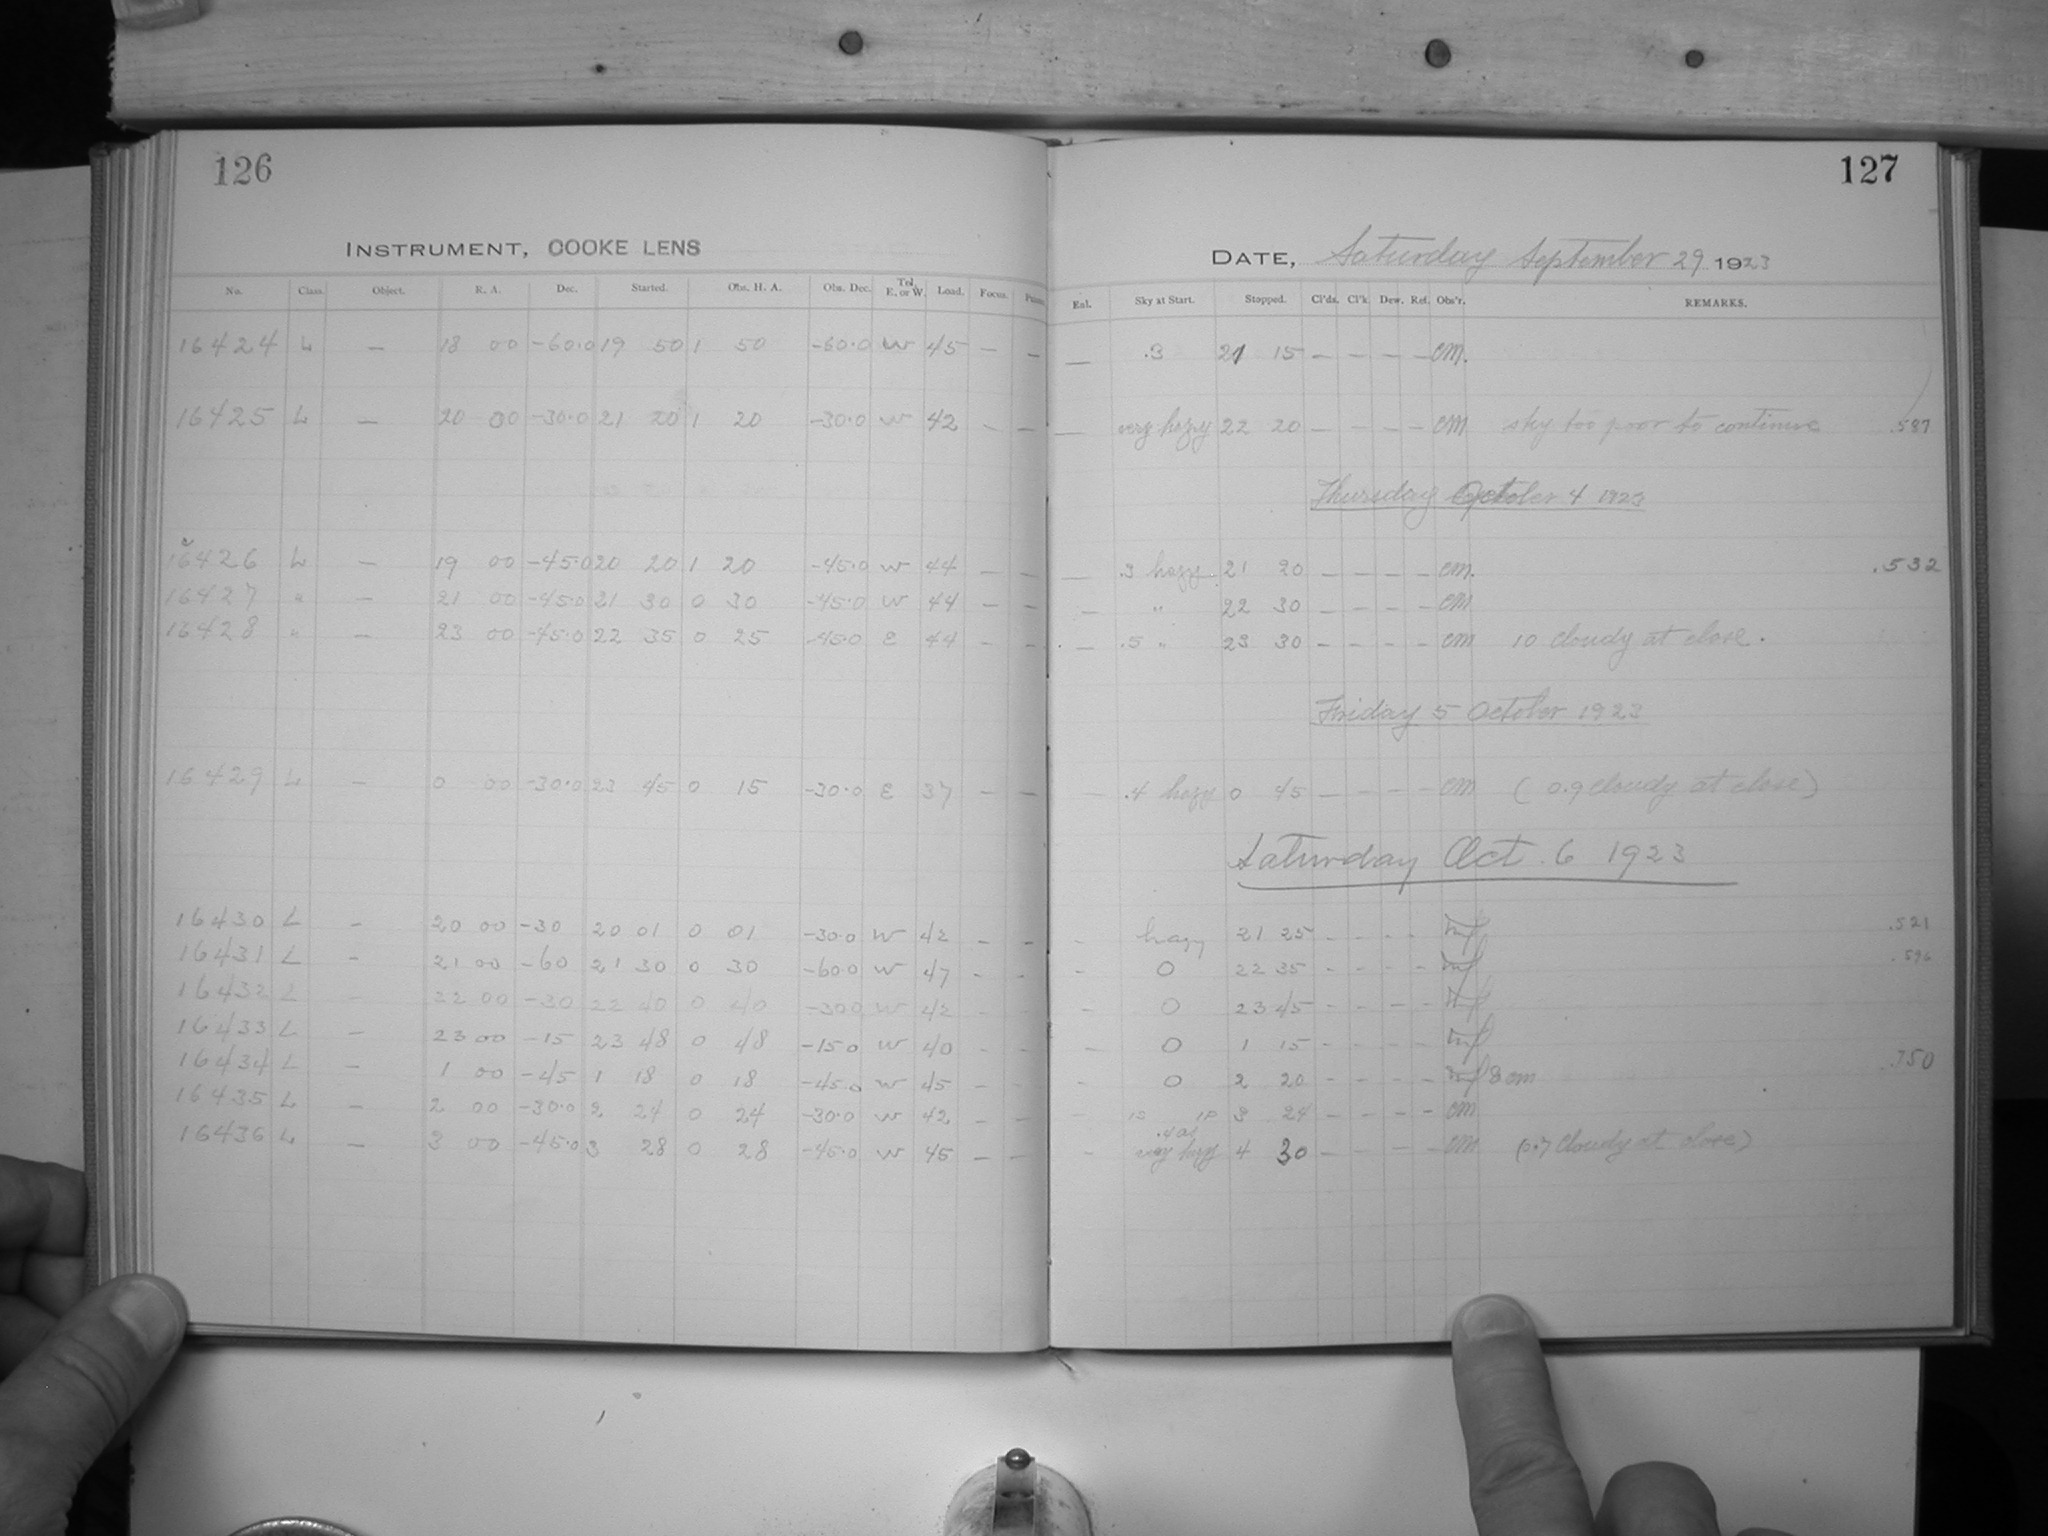 126
127
INSTRUMENT, COOKE LENS
DATE, Saturday September 29 1923
No. Class. Object. R. A. Dec. Started. Obs. H. A. Obs. Dec. Tel. E. or W. Load. Focus. Enl. Sky at Start. Stopped. Cl'ds. Cl'k. Dew. Ref. Obs'r. REMARKS.
16424 L — 18 00 -60.0 19 50 1 50 -60.0 W 45 — — — .3 21 15 — — — — CM.
16425 L — 20 00 -30.0 21 20 1 20 -30.0 W 42 — — — very hazy 22 20 — — — — CM sky too poor to continue .587
Thursday October 4 1923
16426 L — 19 00 -45.0 20 20 1 20 -45.0 W 44 — — — .3 hazy 21 20 — — — — CM. .532
16427 " — 21 00 -45.0 21 30 0 30 -45.0 W 44 — — — " 22 30 — — — — CM
16428 " — 23 00 -45.0 22 35 0 25 -45.0 E 44 — — — .5 " 23 30 — — — — CM 10 cloudy at close.
Friday 5 October 1923
16429 L — 0 00 -30.0 23 45 0 15 -30.0 E 37 — — — .4 hazy 0 45 — — — — CM (0.9 cloudy at close)
Saturday Oct. 6 1923
16430 L — 20 00 -30 20 01 0 01 -30.0 W 42 - - - hazy 21 25 - - - - .521
16431 L - 21 00 -60 21 30 0 30 -60.0 W 47 - - - 0 22 35 - - - - .596
16432 L - 22 00 -30 22 40 0 40 -30.0 W 42 - - - 0 23 45 - - - -
16433 L — 23 00 -15 23 48 0 48 -15.0 W 40 - - - 0 1 15 - - - -
16434 L — 1 00 -45 1 18 0 18 -45.0 W 45 - - - 0 2 20 - - - - & CM .750
16435 L — 2 00 -30.0 2 24 0 24 -30.0 W 42 — — - 3 24 - - - - CM
16436 L — 3 00 -45.0 3 28 0 28 -45.0 W 45 — — - very hazy 4 30 — — — — CM (0.7 cloudy at close)